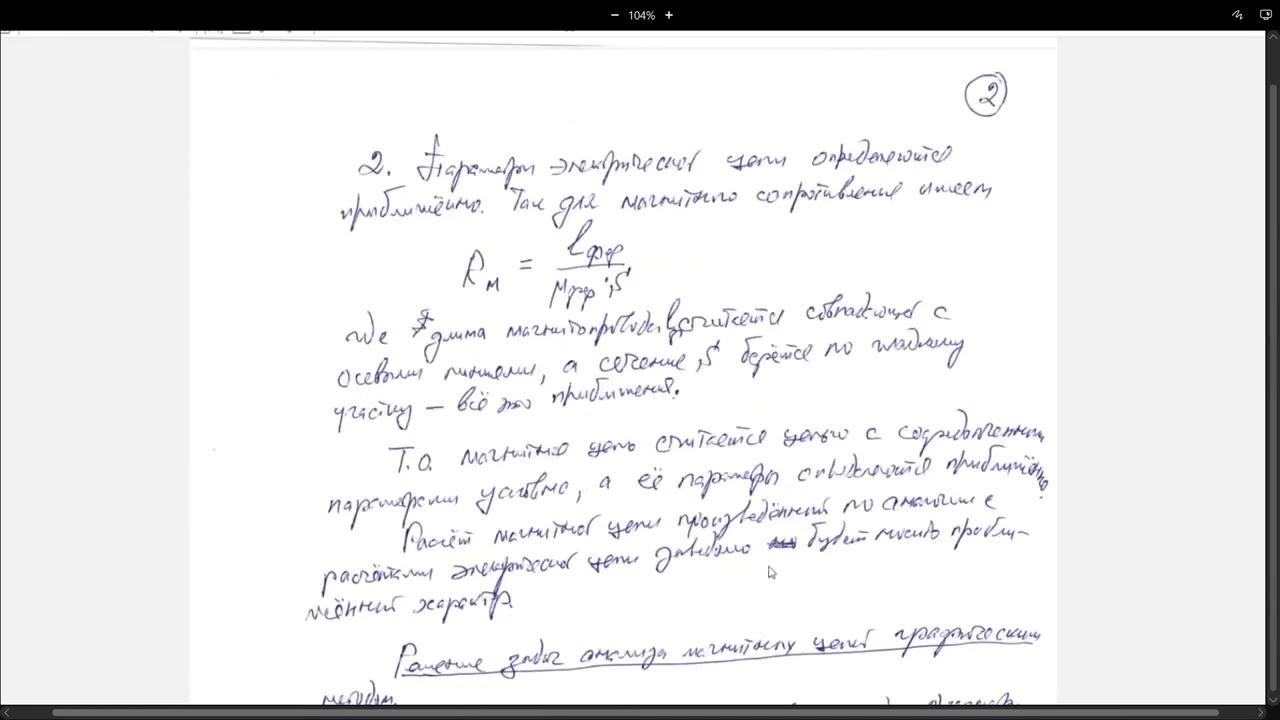 104%
2
2. Параметры электрической цепи определяются
приближённо. Так для магнитного сопротивления имеем
Rм = lфер / μфер · S
где длина магнитопровода l считается совпадающей с
осевыми линиями, а сечение S берётся по гладкому
участку — всё это приближения.
Т.о. магнитная цепь считается цепью с сосредоточенными
параметрами условно, а её параметры определяются приближённо.
Расчёт магнитной цепи произведённый по аналогии с
расчётами электрической цепи заведомо будет носить прибли-
жённый характер.
Решение задач анализа магнитных цепей графическим
методом.